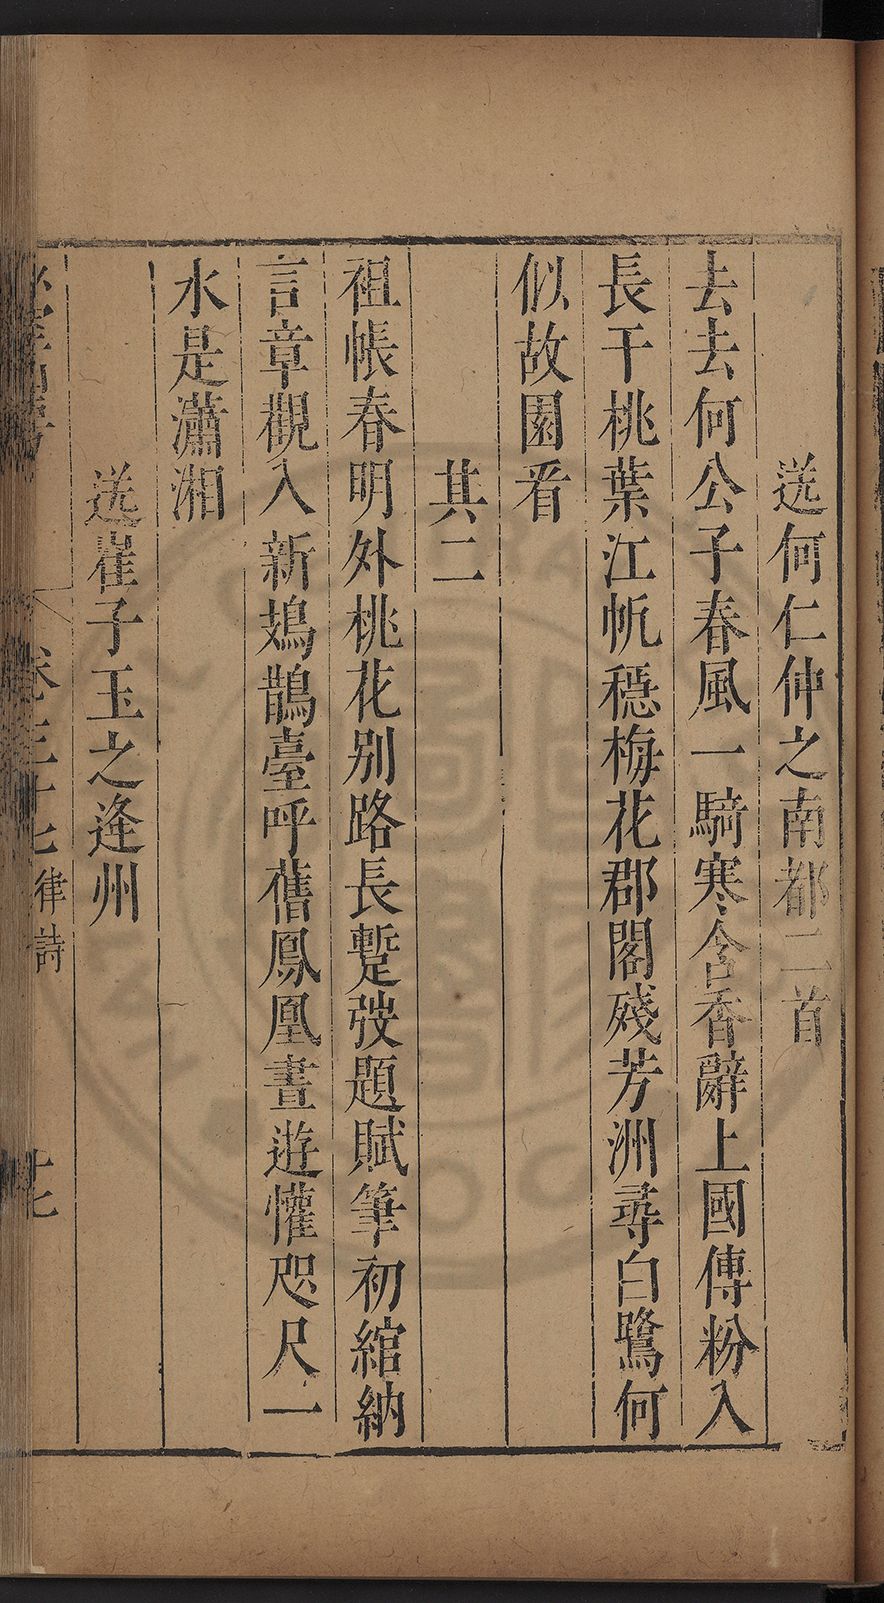 送何仁仲之南都二首
去去何公子春風一騎寒含香辭上國傅粉入
長干桃葉江帆穩梅花郡閣殘芳洲尋白鷺何
似故園看
其二
祖帳春明外桃花別路長蹔弢題賦筆初綰納
言章觀入新鳷鵲臺呼舊鳳凰晝遊懽咫尺一
水是瀟湘
送崔子玉之逄州
卷三十七 律詩 十七